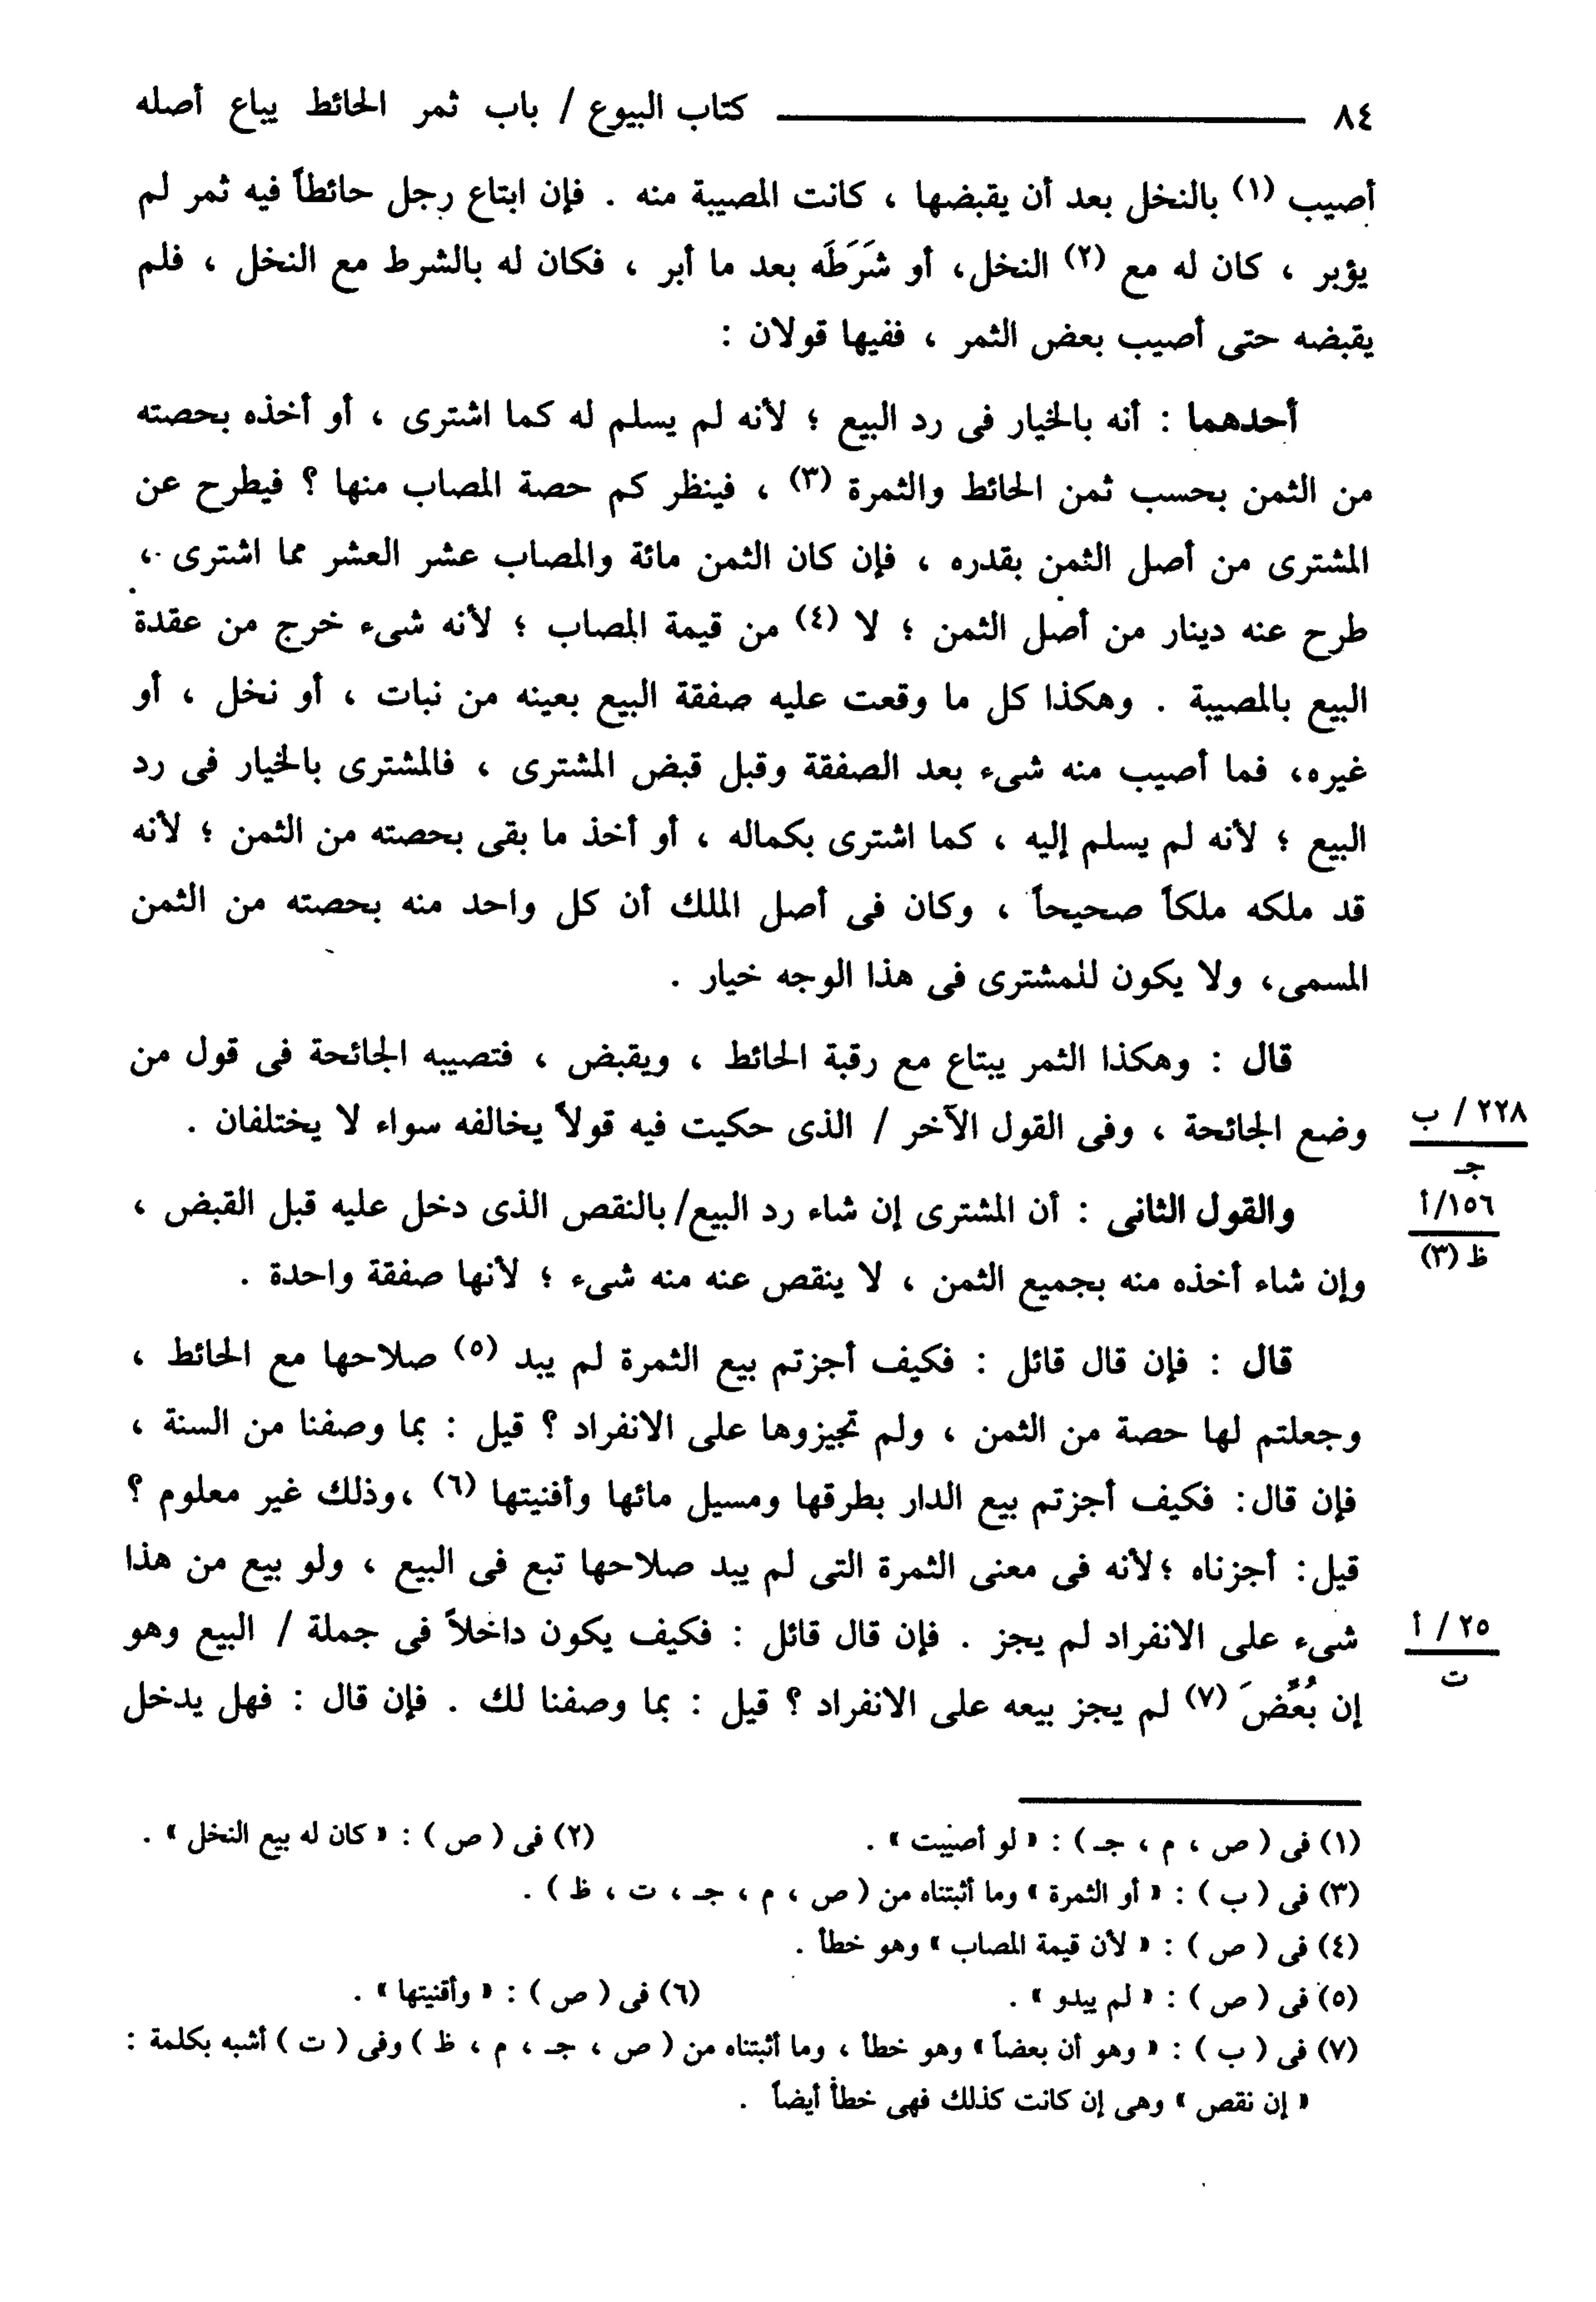 ٨٤ ــــــــــــــــــــ كتاب البيوع / باب ثمر الحائط يباع أصله
أصيب (١) بالنخل بعد أن يقبضها ، كانت المصيبة منه . فإن ابتاع رجل حائطاً فيه ثمر لم
يؤبر ، كان له مع (٢) النخل، أو شَرَطَه بعد ما أبر ، فكان له بالشرط مع النخل ، فلم
يقبضه حتى أصيب بعض الثمر ، ففيها قولان :
أحدهما : أنه بالخيار فى رد البيع ؛ لأنه لم يسلم له كما اشترى ، أو أخذه بحصته
من الثمن بحسب ثمن الحائط والثمرة (٣) ، فينظر كم حصة المصاب منها ؟ فيطرح عن
المشترى من أصل الثمن بقدره ، فإن كان الثمن مائة والمصاب عشر العشر مما اشترى ،
طرح عنه دينار من أصل الثمن ؛ لا (٤) من قيمة المصاب ؛ لأنه شىء خرج من عقدة
البيع بالمصيبة . وهكذا كل ما وقعت عليه صفقة البيع بعينه من نبات ، أو نخل ، أو
غيره، فما أصيب منه شىء بعد الصفقة وقبل قبض المشترى ، فالمشترى بالخيار فى رد
البيع ؛ لأنه لم يسلم إليه ، كما اشترى بكماله ، أو أخذ ما بقى بحصته من الثمن ؛ لأنه
قد ملكه ملكاً صحيحاً ، وكان فى أصل الملك أن كل واحد منه بحصته من الثمن
المسمى، ولا يكون للمشترى فى هذا الوجه خيار .
قال : وهكذا الثمر يبتاع مع رقبة الحائط ، ويقبض ، فتصيبه الجائحة فى قول من
وضع الجائحة ، وفى القول الآخر / الذى حكيت فيه قولاً يخالفه سواء لا يختلفان .
٢٢٨ / ب
جـ
والقول الثانى : أن المشترى إن شاء رد البيع/ بالنقص الذى دخل عليه قبل القبض ،
١٥٦/أ
ظ (٣)
وإن شاء أخذه منه بجميع الثمن ، لا ينقص عنه منه شىء ؛ لأنها صفقة واحدة .
قال : فإن قال قائل : فكيف أجزتم بيع الثمرة لم يبد (٥) صلاحها مع الحائط ،
وجعلتم لها حصة من الثمن ، ولم تجيزوها على الانفراد ؟ قيل : بما وصفنا من السنة ،
فإن قال: فكيف أجزتم بيع الدار بطرقها ومسيل مائها وأفنيتها (٦) ،وذلك غير معلوم ؟
قيل: أجزناه ؛لأنه فى معنى الثمرة التى لم يبد صلاحها تبع فى البيع ، ولو بيع من هذا
شىء على الانفراد لم يجز . فإن قال قائل : فكيف يكون داخلاً فى جملة / البيع وهو
٢٥ / أ
ت
إن بُعِّضَ (٧) لم يجز بيعه على الانفراد ؟ قيل : بما وصفنا لك . فإن قال : فهل يدخل
(١) فى ( ص ، م ، جـ ) : « لو أصيبت » . (٢) فى ( ص ) : « كان له بيع النخل » .
(٣) فى ( ب ) : « أو الثمرة » وما أثبتناه من ( ص ، م ، جـ ، ت ، ظ ) .
(٤) فى ( ص ) : « لأن قيمة المصاب » وهو خطأ .
(٥) فى ( ص ) : « لم يبدو » . (٦) فى ( ص ) : « وأقنيتها » .
(٧) فى ( ب ) : « وهو أن بعضاً » وهو خطأ ، وما أثبتناه من ( ص ، جـ ، م ، ظ ) وفى ( ت ) أشبه بكلمة :
« إن نقص » وهى إن كانت كذلك فهى خطأ أيضاً .